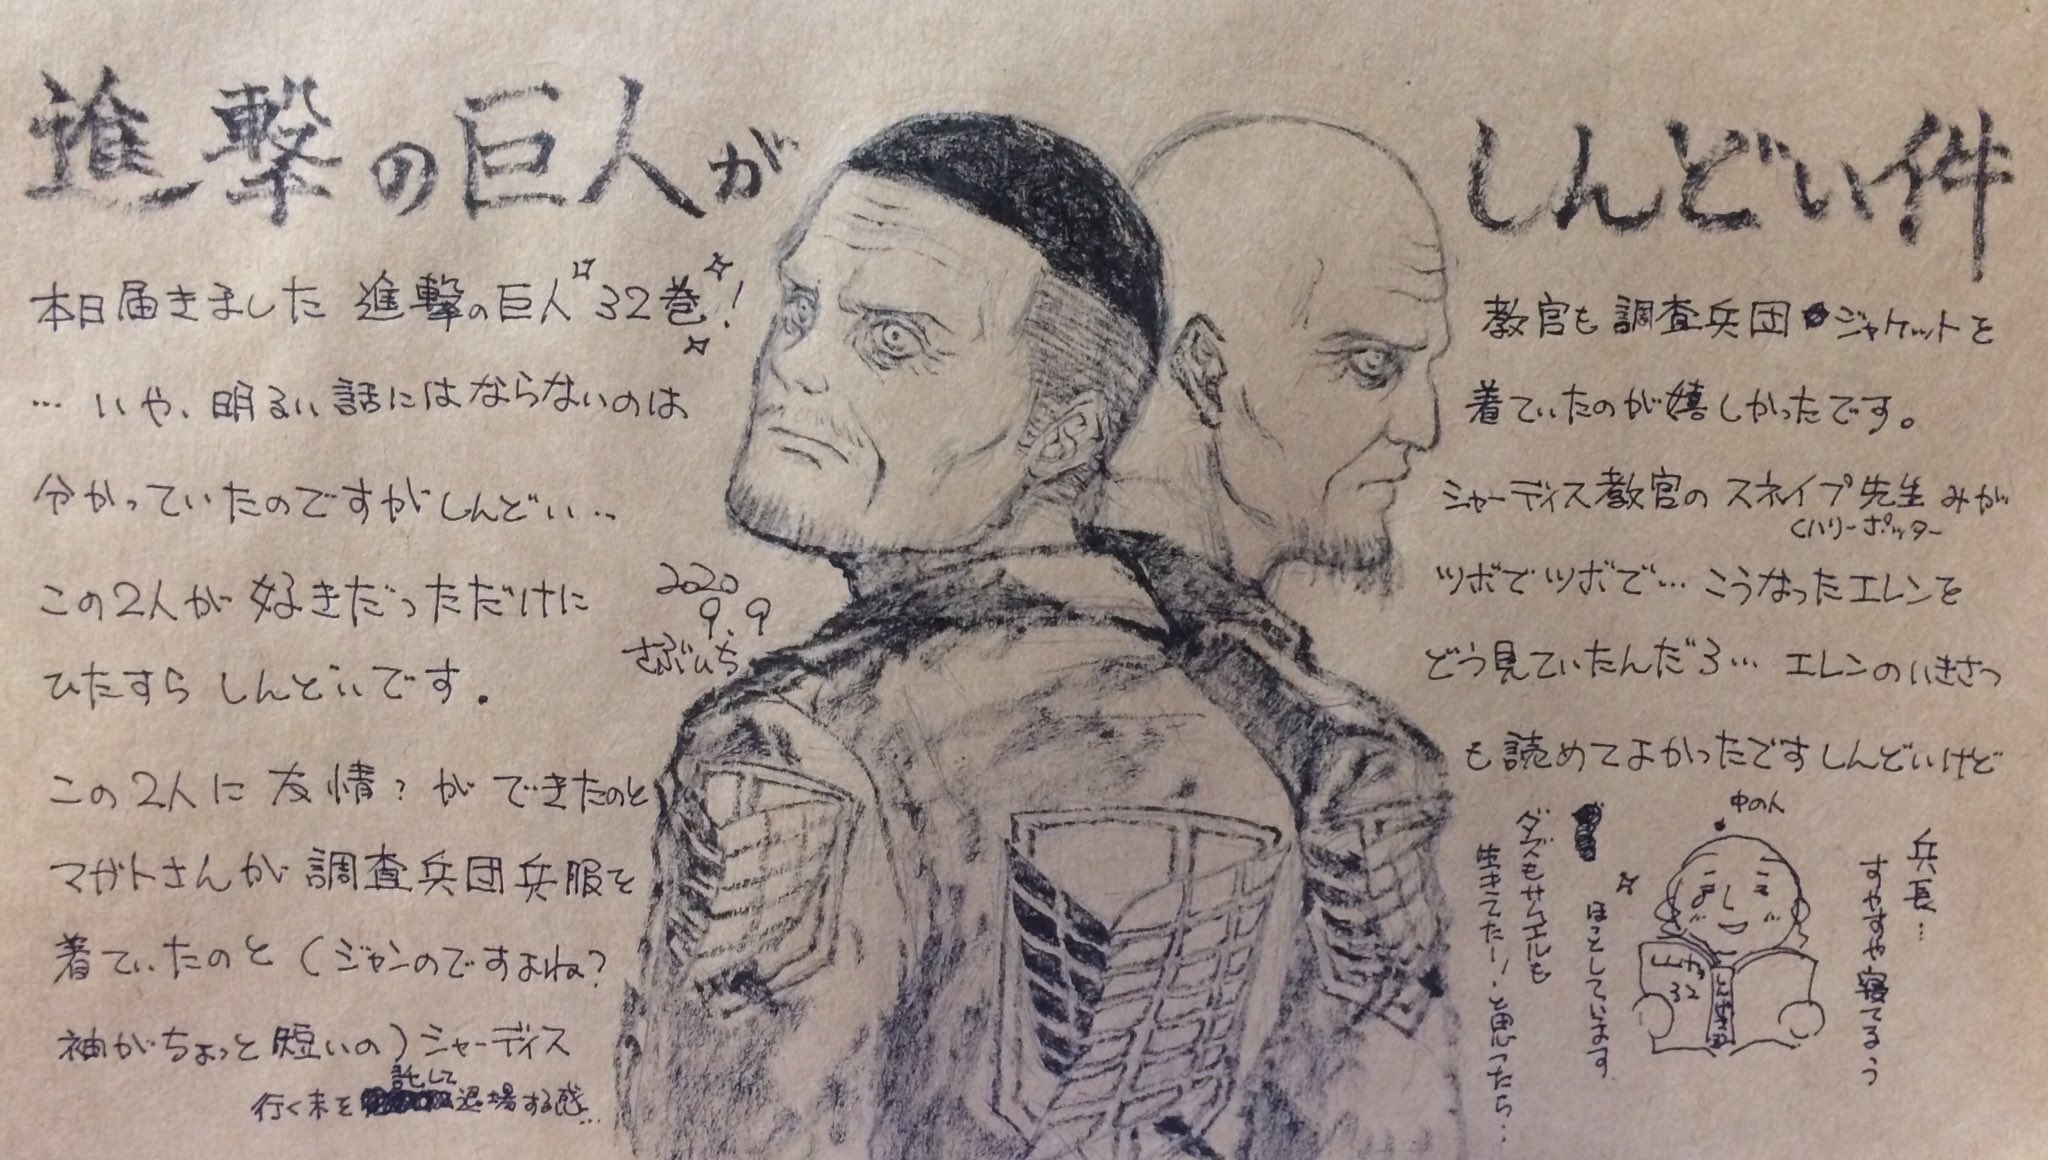 進撃の巨人が
しんどい件
本日届きました 進撃の巨人 32巻!
… いや、明るい話にはならないのは
分かっていたのですがしんどい…
この2人が好きだっただけに
ひたすらしんどいです.
この2人に友情?ができたのと
マガトさんが調査兵団兵服を
着ていたのと(ジャンのですよね?
袖がちょっと短いの)シャーディス
行く末を託して退場する感…
2020
9.9
さぶいち
教官も調査兵団ジャケットを
着ていたのが嬉しかったです。
シャーディス教官のスネイプ先生みが
<ハリーポッター
ツボでツボで… こうなったエレンを
どう見ていたんだろ… エレンのいきさつ
も読めてよかったですしんどいけど
兵長…
すやすや寝てるぅ
中の人
32
ほっとしています
ダズもサムエルも
生きてた!!と思ったら…